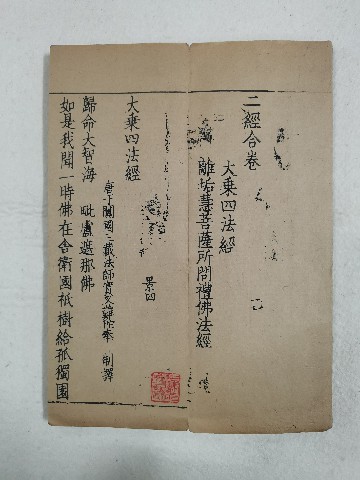 二經合卷
大乗四法經
離垢慧菩薩所問禮佛法經
大乗四法經 景四
唐于闐國三藏法師實叉難陀奉 制譯
歸命大智海 毗盧遮那佛
如是我聞一時佛在舍衛國祇樹給孤獨園